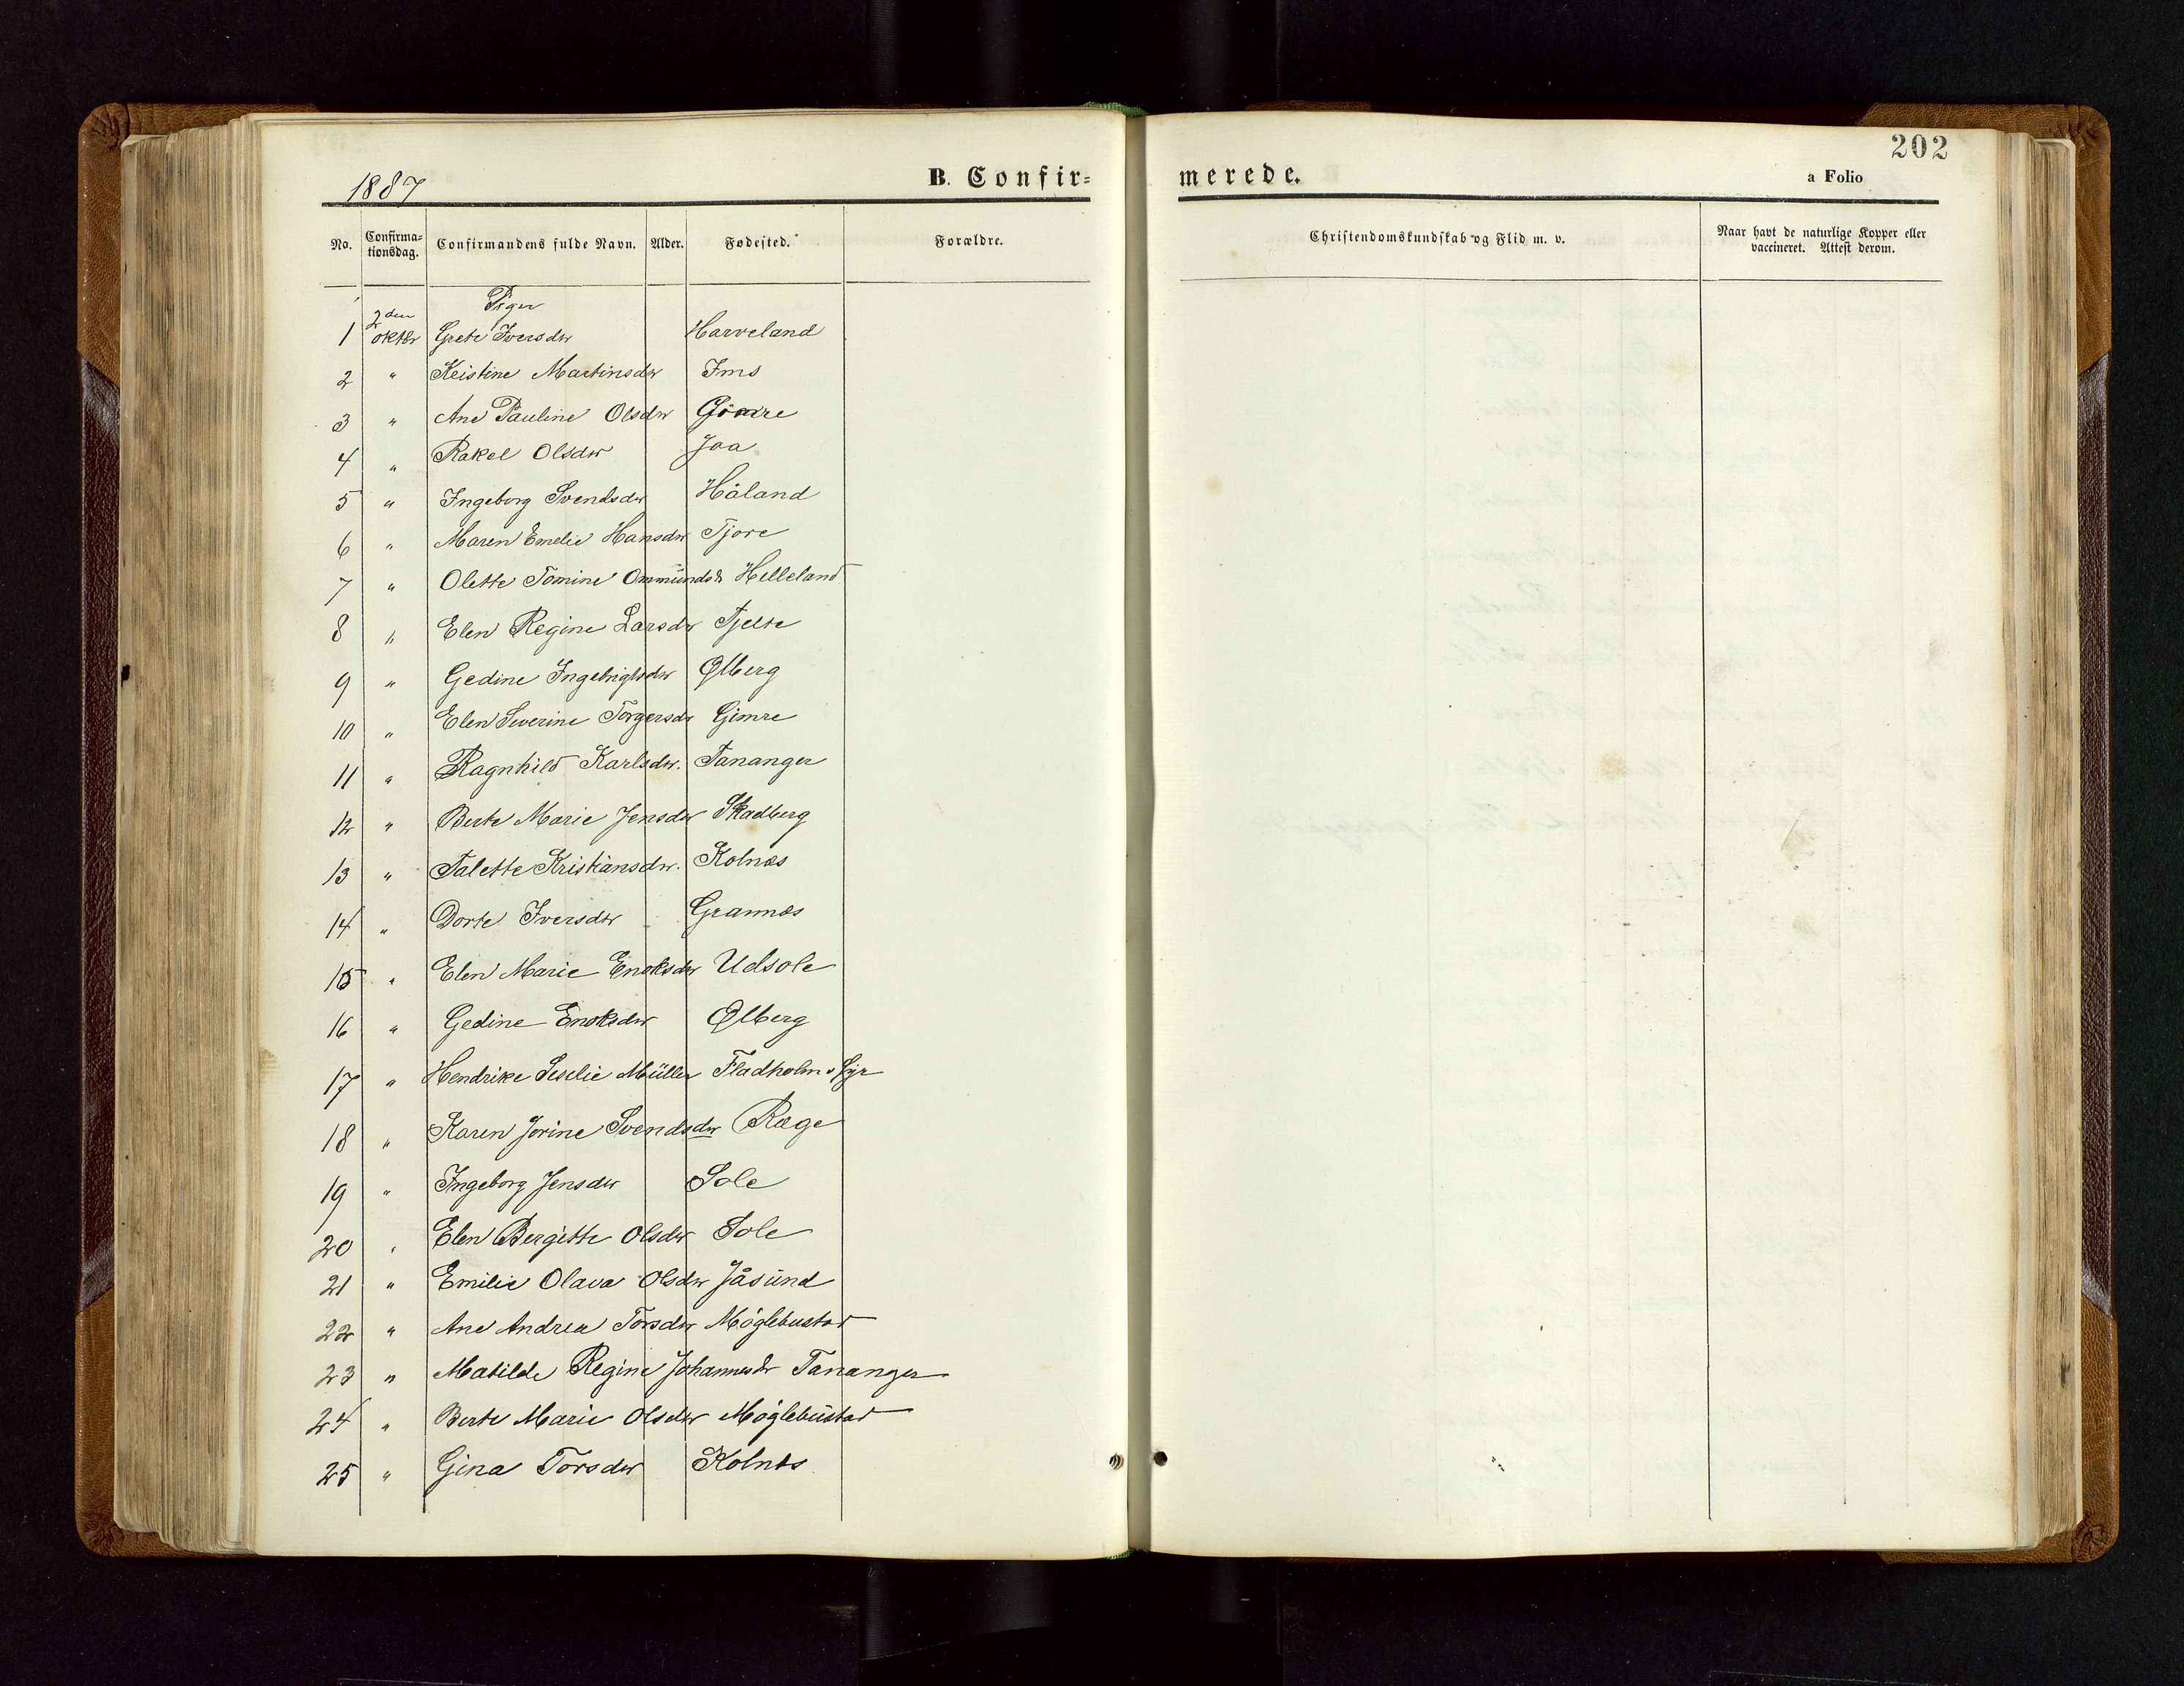 202
1887
B. Confir=
merede.
a Folio
No.
Confirma=
tionsdag.
Confirmandens fulde Navn.
Alder.
Fødested.
Forældre.
Christendomskundskab og Flid m. v.
Naar havt de naturlige Kopper eller
vaccineret. Attest derom.
Piger
2den
1 oktbr Grete Iversdtr Harveland
2 " Kristine Martinsdtr Ims
3 " Ane Pauline Olsdtr
4 " Rakel Olsdtr Joa
5 " Ingeborg Svendsdtr Håland
6 " Maren Emelie Hansdtr Tjore
7 " Olette Tomine Ommundsdr Helleland
8 " Elen Regine Larsdtr Tjelte
9 " Gedine Ingebrigtsdtr Ølberg
10 " Elen Severine Torgersdtr Gimre
11 " Ragnhild Karlsdtr. Tananger
12 " Berte Marie Jensdtr Skadberg
13 " Talette Kristiansdtr. Kolnæs
14 " Dorte Iversdtr Grannæs
15 " Elen Marie Enoksdtr Udsole
16 " Gedine Enoksdtr Ølberg
17 " Hendrike Seselie Müller Fladholms Fyr
18 " Karen Jorine Svendsdtr Ræge
19 " Ingeborg Jensdtr Sole
20 " Elen Bergitte Olsdtr Sole
21 " Emilie Olava Olsdtr Jåsund
22 " Ane Andrea Torsdtr Møglebustad
23 " Matilde Regine Johannesdr Tananger
24 " Berte Marie Olsdtr Møglebustad
25 " Gina Torsdtr Kolnæs